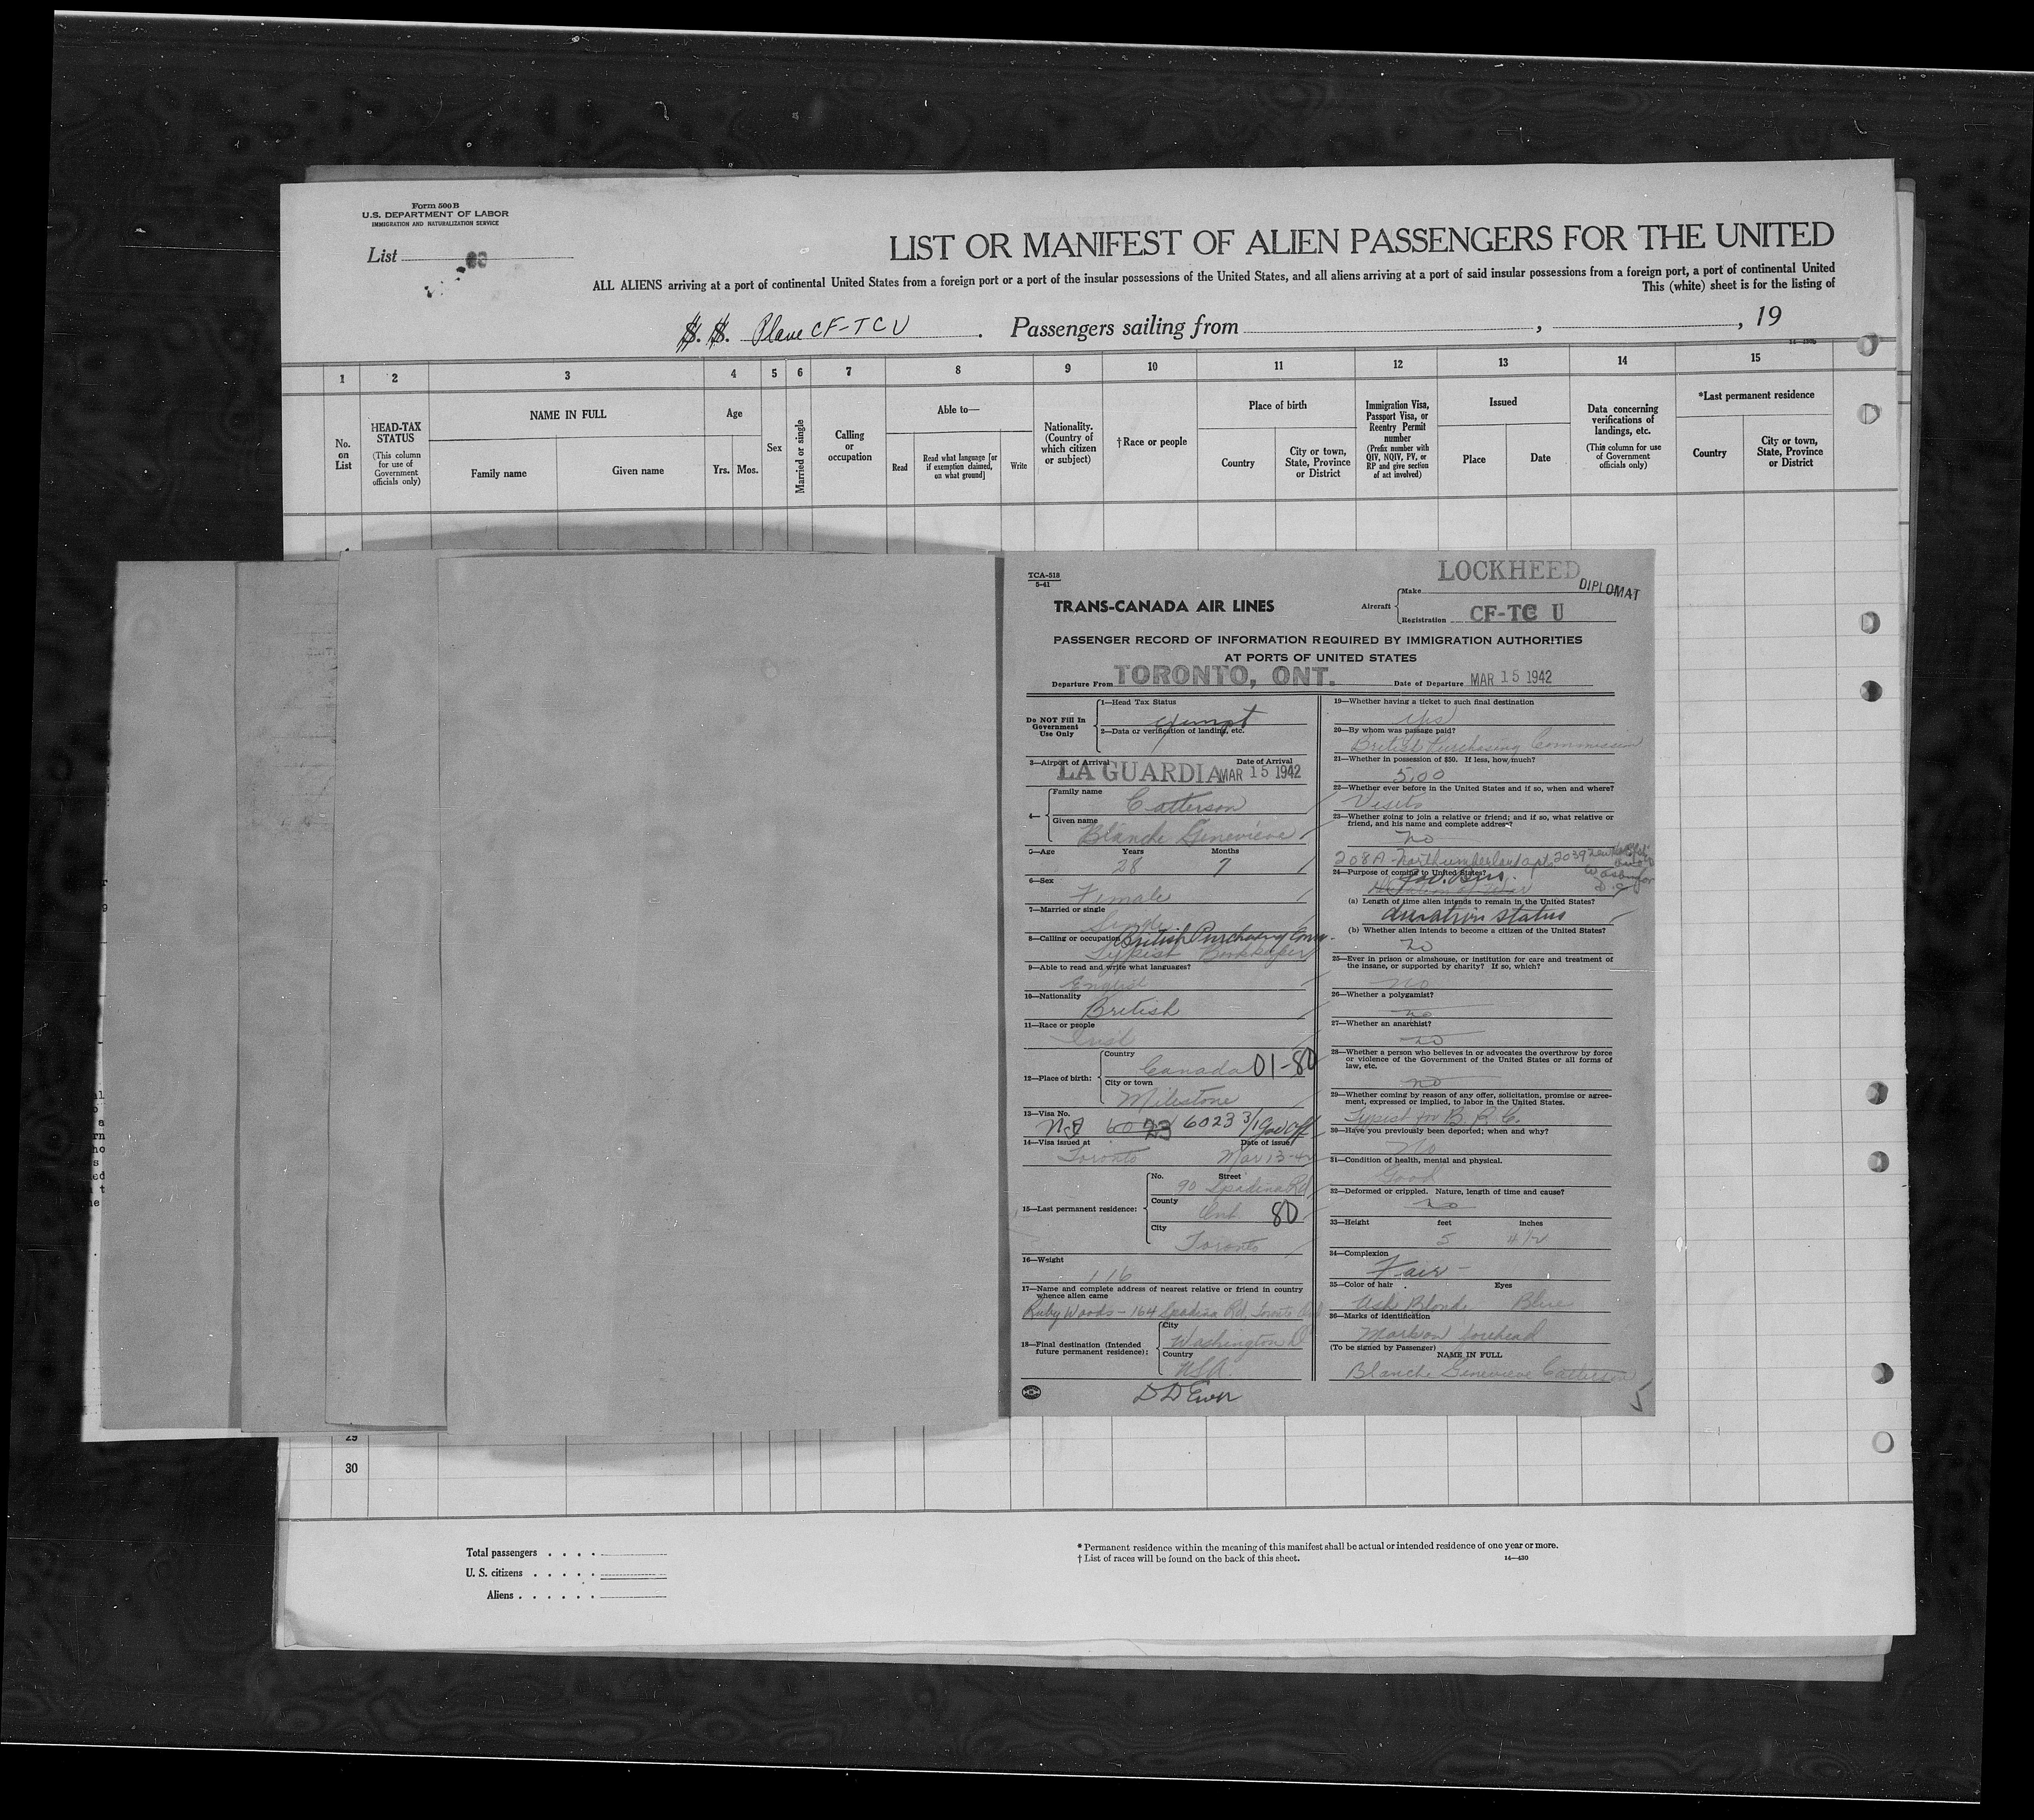 Form 500 B
U.S. DEPARTMENT OF LABOR
IMMIGRATION AND NATURALIZATION SERVICE
List
LIST OR MANIFEST OF ALIEN PASSENGERS FOR THE UNITED
ALL ALIENS arriving at a port of continental United States from a foreign port or a port of the insular possessions of the United States, and all aliens arriving at a port of said insular possessions from a foreign port, a port of continental United
This (white) sheet is for the listing of
S. S. Plane CF-TCU . Passengers sailing from , , 19
1 2 3 4 5 6 7 8 9 10 11 12 13 14 15
No. on List
HEAD-TAX STATUS
(This column for use of Government officials only)
NAME IN FULL
Family name
Given name
Age
Yrs. Mos.
Sex
Married or single
Calling or occupation
Able to—
Read
Read what language [or if exemption claimed, on what ground]
Write
Nationality. (Country of which citizen or subject)
†Race or people
Place of birth
Country
City or town, State, Province or District
Immigration Visa, Passport Visa, or Reentry Permit number
(Prefix number with QIV, NQIV, PV, or RP and give section of act involved)
Issued
Place
Date
Data concerning verifications of landings, etc.
(This column for use of Government officials only)
*Last permanent residence
Country
City or town, State, Province or District
TCA-518
5-41
TRANS-CANADA AIR LINES
Aircraft
Make LOCKHEED
DIPLOMAT
Registration CF-TC U
PASSENGER RECORD OF INFORMATION REQUIRED BY IMMIGRATION AUTHORITIES
AT PORTS OF UNITED STATES
Departure From TORONTO, ONT. Date of Departure MAR 15 1942
Do NOT Fill In Government Use Only
1—Head Tax Status
exempt
2—Data or verification of landing, etc.
3—Airport of Arrival Date of Arrival
LA GUARDIA MAR 15 1942
4—
Family name
Catterson
Given name
Blanche Genevieve
5—Age Years Months
28 7
6—Sex
Female
7—Married or single
Single
8—Calling or occupation British Purchasing Comm.
Typist Bookkeeper
9—Able to read and write what languages?
English
10—Nationality
British
11—Race or people
Irish
12—Place of birth:
Country
Canada 01-80
City or town
Milestone
13—Visa No.
6023 3/1 Gov Off
14—Visa issued at Date of issue
Toronto Mar 13-42
15—Last permanent residence:
No. Street
90 Spadina Rd
County
Ont. 80
City
Toronto
16—Weight
116
17—Name and complete address of nearest relative or friend in country whence alien came
Ruby Woods - 164 Spadina Rd, Toronto
18—Final destination (Intended future permanent residence):
City
Washington D
Country
USA.
19—Whether having a ticket to such final destination
yes
20—By whom was passage paid?
British Purchasing Commission
21—Whether in possession of $50. If less, how much?
5.00
22—Whether ever before in the United States and if so, when and where?
Visits
23—Whether going to join a relative or friend; and if so, what relative or friend, and his name and complete address?
No
208A - Northumberland apts 2039
24—Purpose of coming to United States?
Gov. Bus.
Duration of War
(a) Length of time alien intends to remain in the United States?
duration status
(b) Whether alien intends to become a citizen of the United States?
No
25—Ever in prison or almshouse, or institution for care and treatment of the insane, or supported by charity? If so, which?
No
26—Whether a polygamist?
no
27—Whether an anarchist?
no
28—Whether a person who believes in or advocates the overthrow by force or violence of the Government of the United States or all forms of law, etc.
no
29—Whether coming by reason of any offer, solicitation, promise or agreement, expressed or implied, to labor in the United States.
Typist for B. P. C.
30—Have you previously been deported; when and why?
No
31—Condition of health, mental and physical.
Good
32—Deformed or crippled. Nature, length of time and cause?
no
33—Height feet inches
5 4 1/2
34—Complexion
Fair -
35—Color of hair Eyes
Ash Blond. Blue
36—Marks of identification
Mark on forehead
(To be signed by Passenger)
NAME IN FULL
Blanche Genevieve Catterson
5
29
30
Total passengers . . . .
U. S. citizens . . . . .
Aliens . . . . . .
* Permanent residence within the meaning of this manifest shall be actual or intended residence of one year or more.
† List of races will be found on the back of this sheet. 14—430